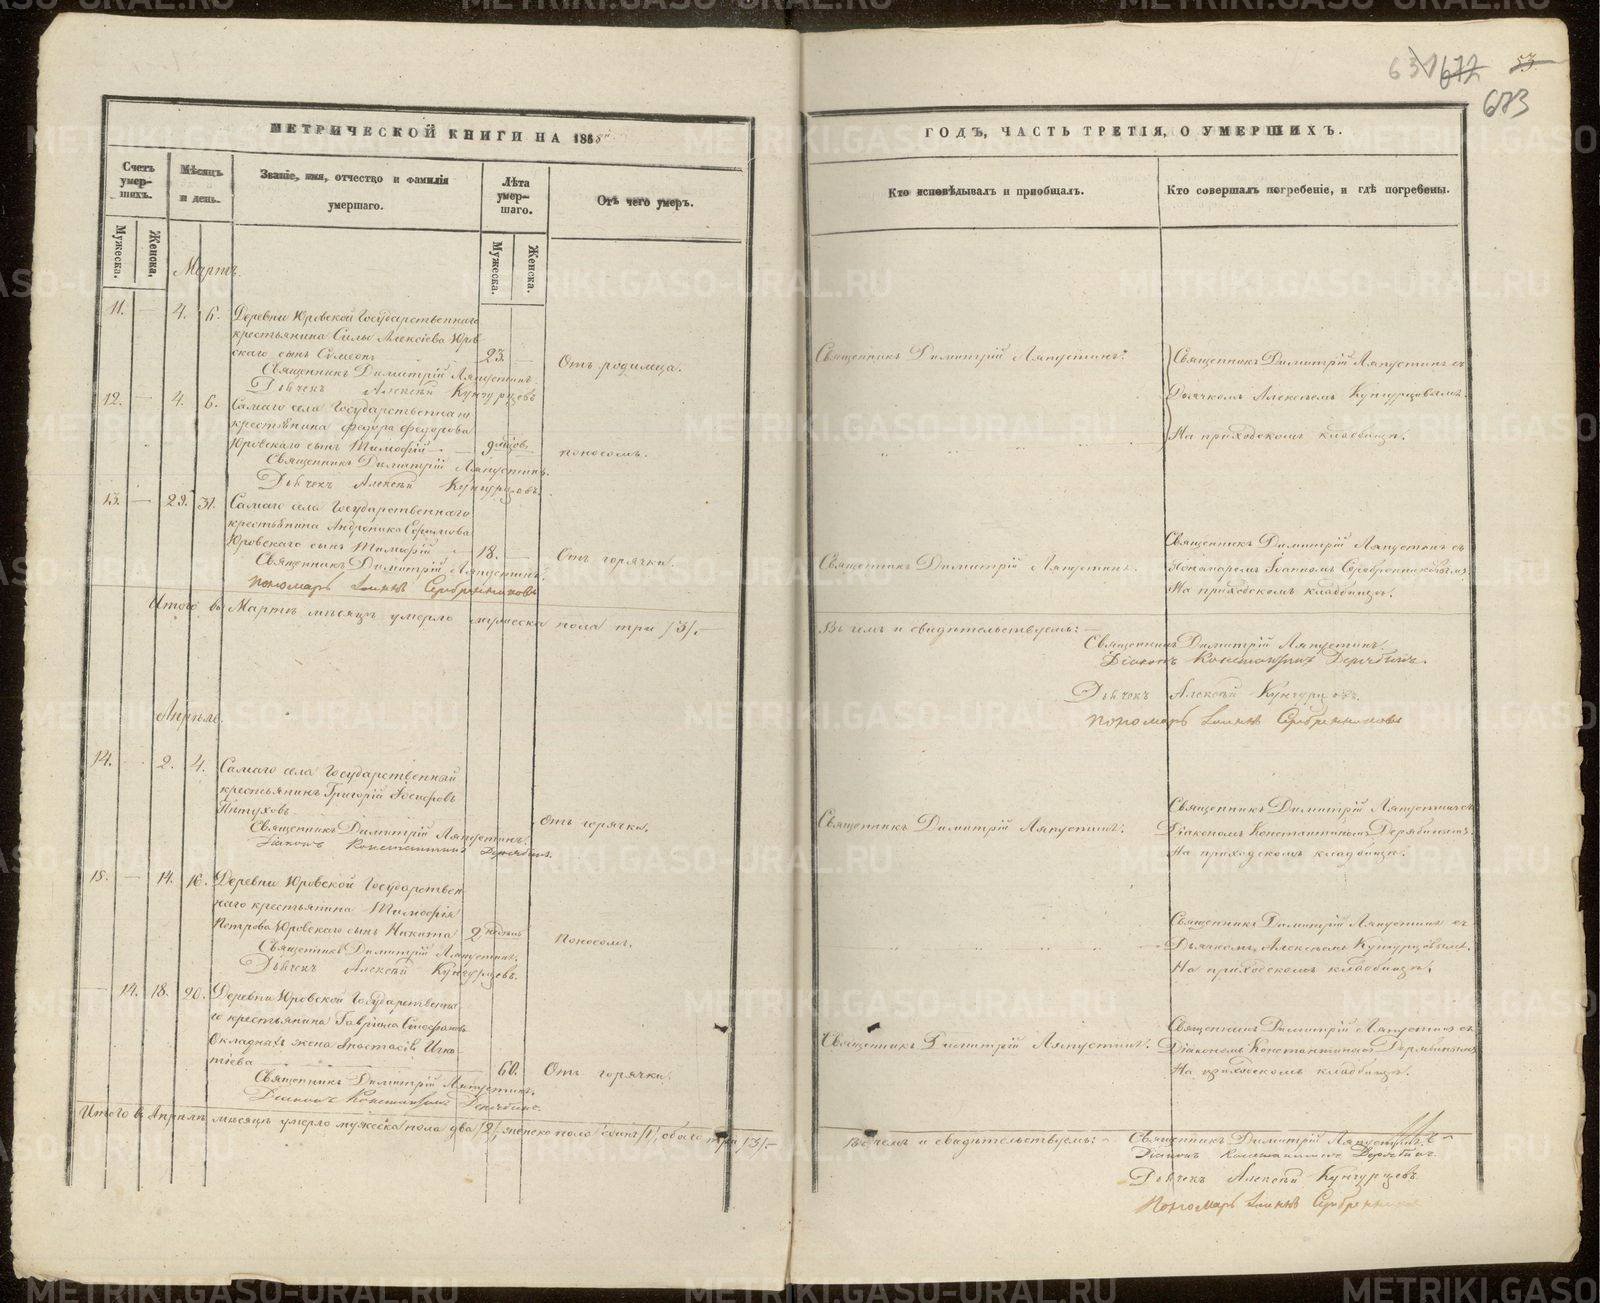 631 672 53
673
МЕТРИЧЕСКОЙ КНИГИ НА 1868й
Счетъ умер-шихъ.
Мѣсяцъ и день.
Званіе, имя, отчество и фамилія умершаго.
Лѣта умер-шаго.
Отъ чего умеръ.
Мужеска.
Женска.
Мужеска.
Женска.
Мартъ.
11. — 4. 6. Деревни Юровской Государственнаго
крестьянина Силы Алексѣева Юров
скаго сынъ Симеонъ 23. — Отъ родимца.
Священникъ Димитрій Ляпустинъ.
Дьячекъ Алексѣй Кунгурцевъ
12. — 4. 6. Самаго села Государственнаго
крестьянина Федора Федорова
Юровскаго сынъ Тимофѣй — 9 мѣсяцов. поносомъ.
Священникъ Димитрій Ляпустинъ.
Дьячекъ Алексѣй Кунгурцевъ.
13. — 29. 31. Самаго села Государственнаго
крестьянина Андроника
Юровскаго сынъ Тимофѣй 18. — Отъ горячки.
Священникъ Димитрій Ляпустинъ.
Пономарь Іоаннъ Серебренниковъ
Итого въ Мартѣ мѣсяцѣ умерло мужеска пола три /3/. —
Апрѣль.
14. — 2. 4. Самаго села Государственный
крестьянинъ Григорій Іосифовъ
Пѣтуховъ Отъ горячки.
Священникъ Димитрій Ляпустинъ.
Діаконъ Константинъ Дерябинъ.
15. — 14. 16. Деревни Юровской Государствен
наго крестьянина Тимофѣя
Петрова Юровскаго сынъ Никита 2 недѣль Поносомъ.
Священникъ Димитрій Ляпустинъ.
Дьячекъ Алексѣй Кунгурцевъ.
— 14. 18. 20. Деревни Юровской Государственна
го крестьянина Гавріила Стефанова
Окладныхъ жена Анастасія Игна
тіева 60. Отъ горячки.
Священникъ Димитрій Ляпустинъ.
Діаконъ Константинъ Дерябинъ.
Итого въ Апрѣлѣ мѣсяцѣ умерло мужеска пола два /2/, женска пола одинъ /1/, обоего три /3/. —
ГОДЪ, ЧАСТЬ ТРЕТІЯ, О УМЕРШИХЪ.
Кто исповѣдывалъ и пріобщалъ.
Кто совершалъ погребеніе, и гдѣ погребены.
Священникъ Димитрій Ляпустинъ.
Священникъ Димитрій Ляпустинъ съ
Дьячкомъ Алексѣемъ Кунгурцовымъ.
На приходскомъ кладбищѣ.
Священникъ Димитрій Ляпустинъ.
Священникъ Димитрій Ляпустинъ съ
Пономаремъ Іоанномъ Серебренниковымъ.
На приходскомъ кладбищѣ.
Въ чемъ и свидѣтельствуемъ: —
Священникъ Димитрій Ляпустинъ.
Діаконъ Константинъ Дерябинъ.
Дьячекъ Алексѣй Кунгурцевъ.
Пономарь Іоаннъ Серебренниковъ
Священникъ Димитрій Ляпустинъ.
Священникъ Димитрій Ляпустинъ съ
Діакономъ Константиномъ Дерябинымъ.
На приходскомъ кладбищѣ.
Священникъ Димитрій Ляпустинъ съ
Дьячкомъ Алексѣемъ Кунгурцовымъ.
На приходскомъ кладбищѣ.
Священникъ Димитрій Ляпустинъ.
Священникъ Димитрій Ляпустинъ съ
Діакономъ Константиномъ Дерябинымъ
На приходскомъ кладбищѣ.
Въ чемъ и свидѣтельствуемъ: —
Священникъ Димитрій Ляпустинъ.
Діаконъ Константинъ Дерябинъ.
Дьячекъ Алексѣй Кунгурцевъ.
Пономарь Іоаннъ Серебренниковъ
METRIKI.GASO-URAL.RU